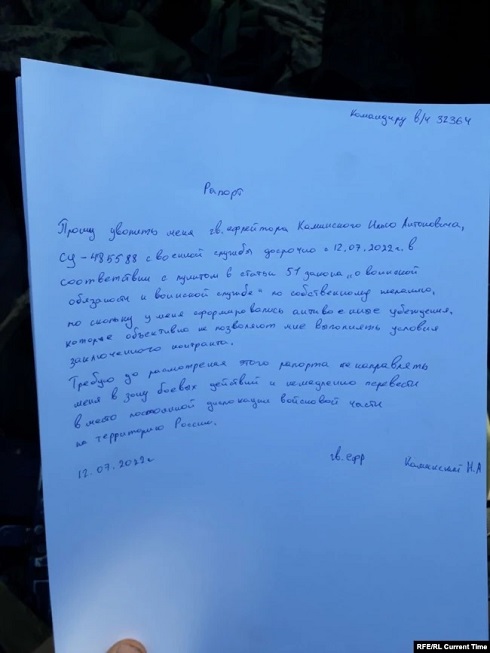 Командиру в/ч 32364
Рапорт
Прошу уволить меня гв. ефрейтора Каминского Илью Антоновича,
СУ-485588 с военной службы досрочно с 12.07.2022 г. в
соответствии с пунктом в статьи 51 закона „о воинской
обязаности и воинской службе" по собственному желанию,
по скольку у меня сформировались антивоенные убеждения,
которые объективно не позволяют мне выполнять условия
заключенного контракта.
Требую до расмотрения этого рапорта не направлять
меня в зону боевых действий и немедленно перевести
в место постоянной дислокации войсковой части
на территорию России.
12.07.2022г
гв. ефр Каминский И.А
RFE/RL Current Time